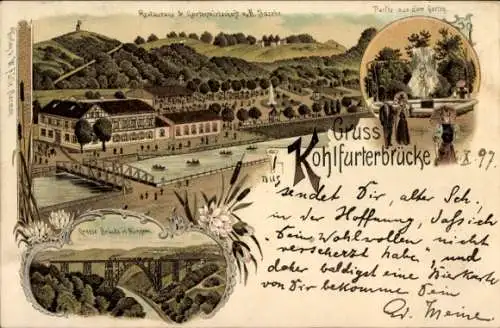 Restaurant & Gartenwirtschaft v. R.
Partie aus dem Garten
Gruss
aus
Kohlfurterbrücke
X. 97.
sendet Dir, alter Sch.,
in der Hoffnung, daß ich
"Dein Wohlwollen nicht
verscherzt habe", und
daher baldigst eine Bierkarte
von Dir bekomme Dein
Grosse Brücke b. Müngsten